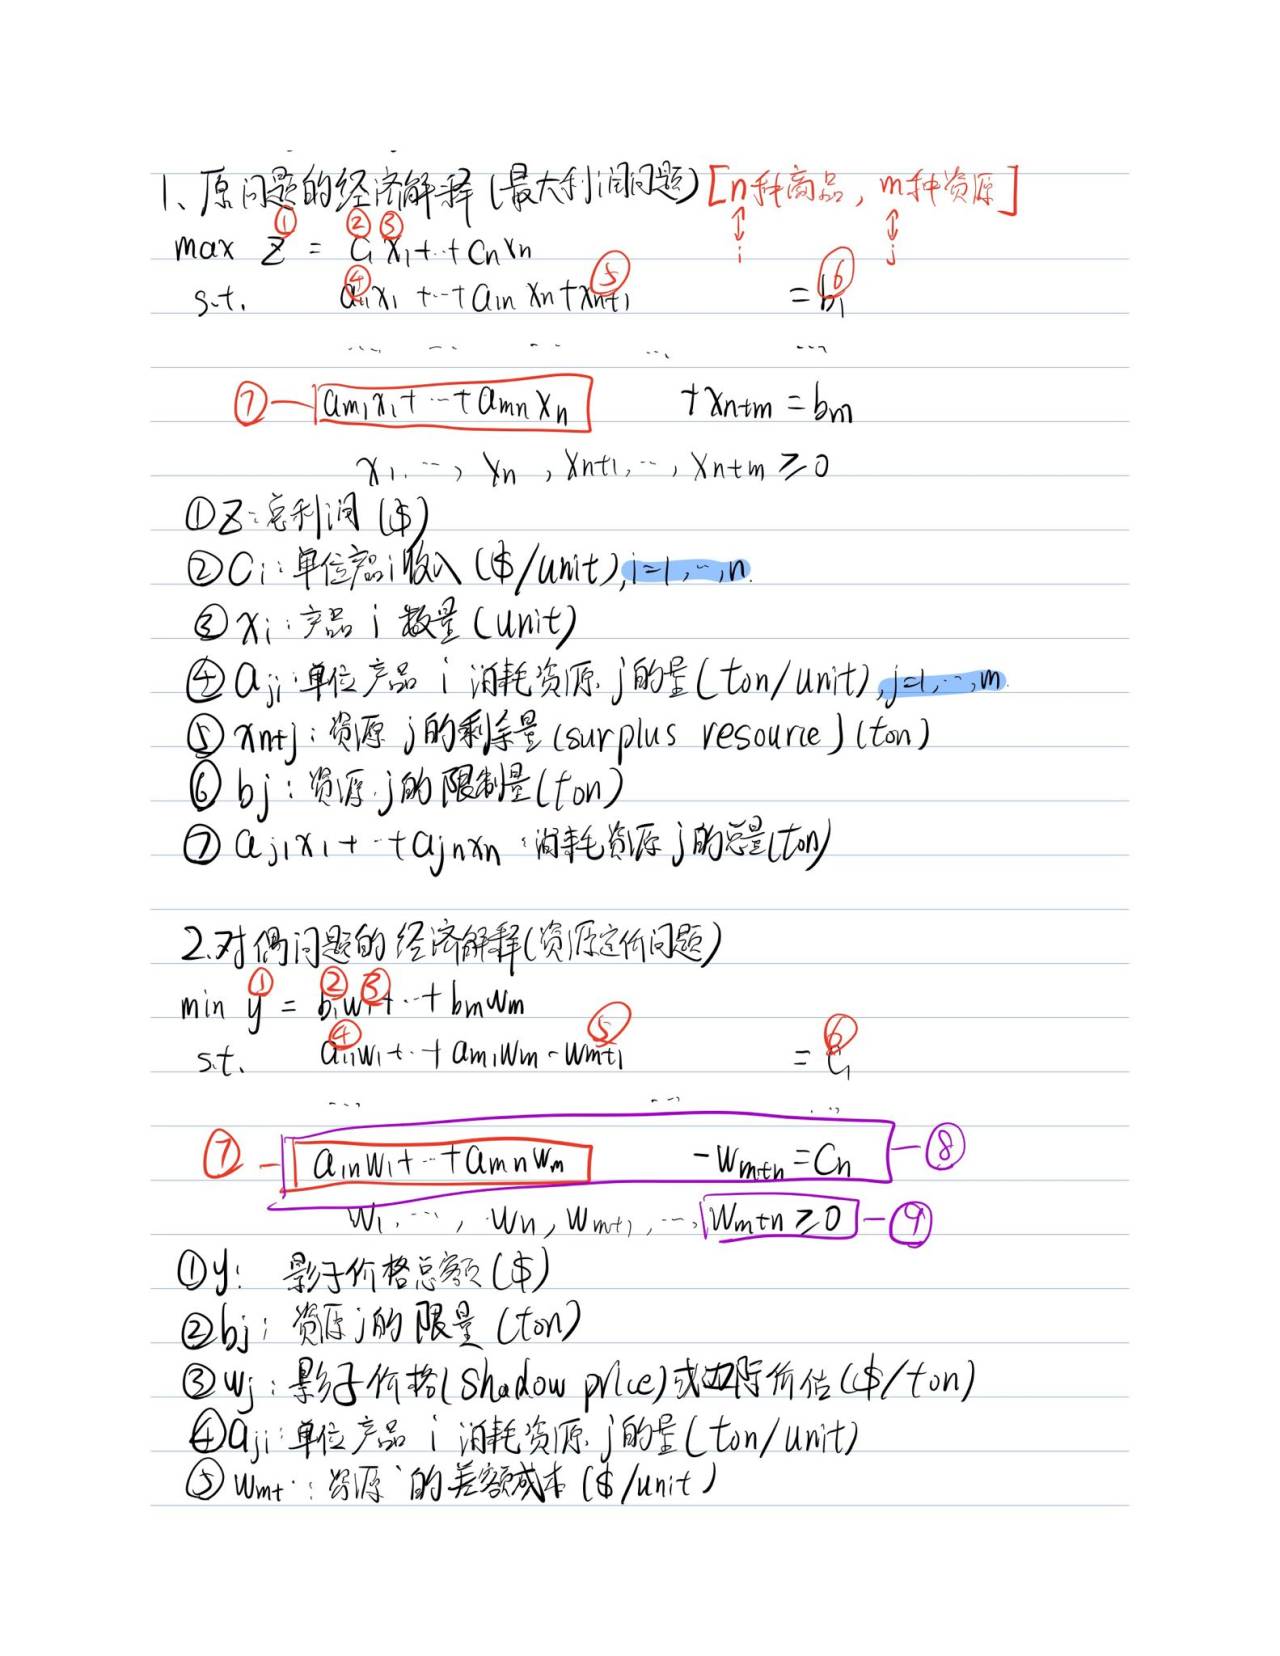 1、原问题的经济解释(最大利润问题)[n种商品, m种资源]
① ② ③ ↕ ↕
max Z = C₁X₁+‥+CnXn i j
④ ⑤ ⑥
s.t. a₁₁x₁+‥+a₁nXn+Xn+1 =b₁
‥‥ ‥ ‥ ‥ ‥‥
⑦—am₁x₁+‥+amnXn +Xn+m=bm
X₁,‥, Xn, Xn+1,‥, Xn+m≥0
①Z:总利润($)
②Ci:单位产品i收入($/unit),i=1,‥,n.
③xi:产品i数量(unit)
④aji:单位产品i消耗资源j的量(ton/unit),j=1,‥,m.
⑤xn+j:资源j的剩余量(surplus resource)(ton)
⑥bj:资源j的限制量(ton)
⑦aj₁x₁+‥+ajnxn:消耗资源j的总量(ton)
2.对偶问题的经济解释(资源定价问题)
① ② ③
min y = b₁w₁+‥+bmwm
④ ⑤ ⑥
s.t. a₁₁w₁+‥+am₁wm-wm+1 =C₁
‥‥ ‥‥ ‥‥
⑦—a₁nw₁+‥+amnwm -wm+n=Cn—⑧
w₁,‥, wn, wm+1,‥, wm+n≥0—⑨
①y: 影子价格总额($)
②bj:资源j的限量(ton)
③wj:影子价格(shadow price)或边际价估($/ton)
④aji:单位产品i消耗资源j的量(ton/unit)
⑤wm+:资源 的差额成本($/unit)